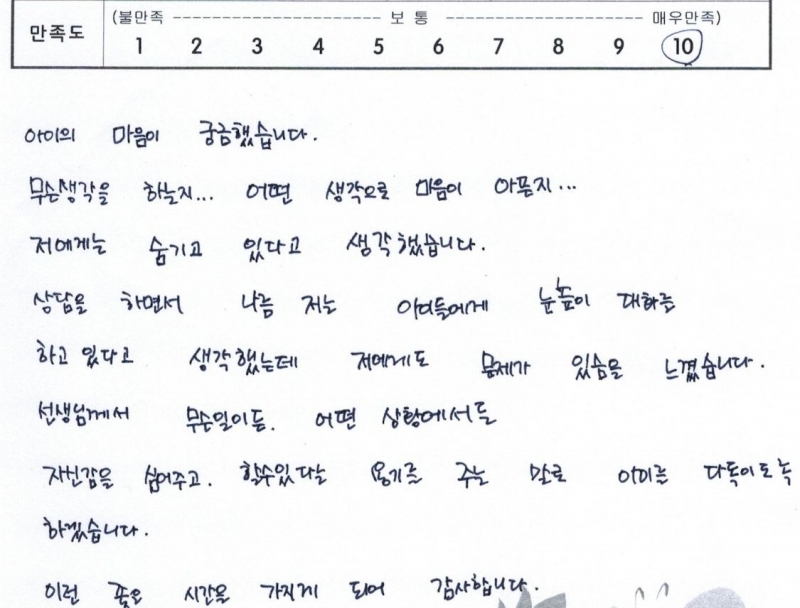 만족도 (불만족 ---------- 보 통 ---------- 매우만족)
1 2 3 4 5 6 7 8 9 10
아이의 마음이 궁금했습니다.
무슨생각을 하는지... 어떤 생각으로 마음이 아픈지...
저에게는 숨기고 있다고 생각했습니다.
상담을 하면서 나름 저는 아이들에게 눈높이 대화를
하고 있다고 생각했는데 저에게도 문제가 있슴을 느꼈습니다.
선생님께서 무슨일이든. 어떤 상황에서든
자신감을 심어주고. 할수있다는 용기를 주는 말로 아이를 다독이도록
하겠습니다.
이런 좋은 시간을 가지게 되어 감사합니다.